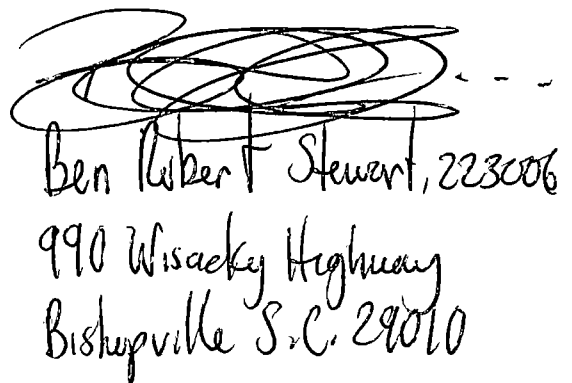 Ben Robert Stewart, 223006
990 Wisacky Highway
Bishopville S.C. 29010